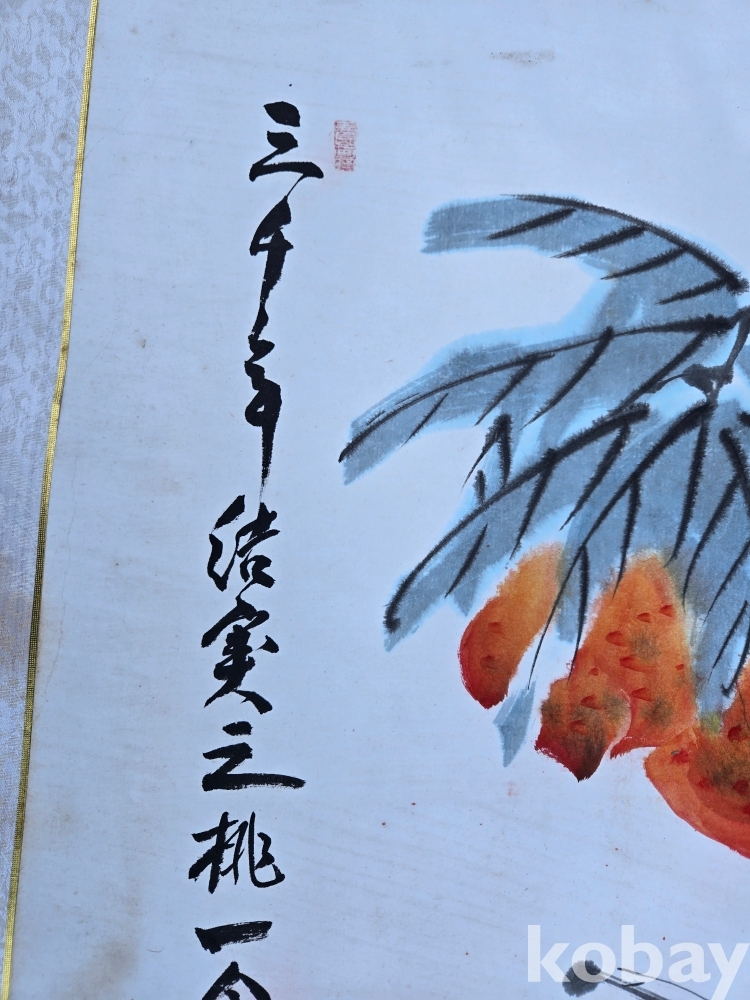 三千年结实之桃一
kobay